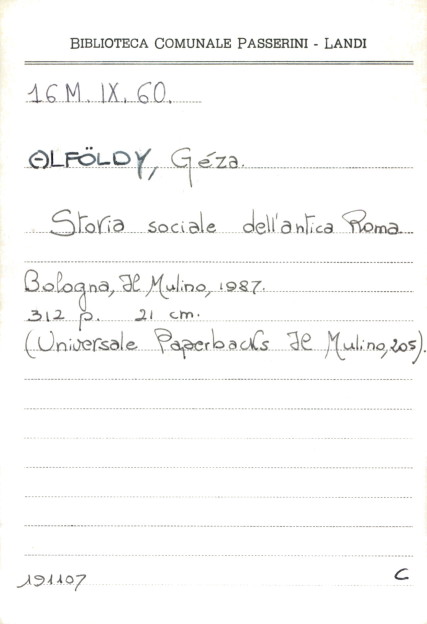 BIBLIOTECA COMUNALE PASSERINI - LANDI
16 M. IX. 60.
ALFÖLDY, Géza.
Storia sociale dell'antica Roma
Bologna, Il Mulino, 1987.
312 p. 21 cm.
(Universale Paperbacks Il Mulino, 205).
191107 C